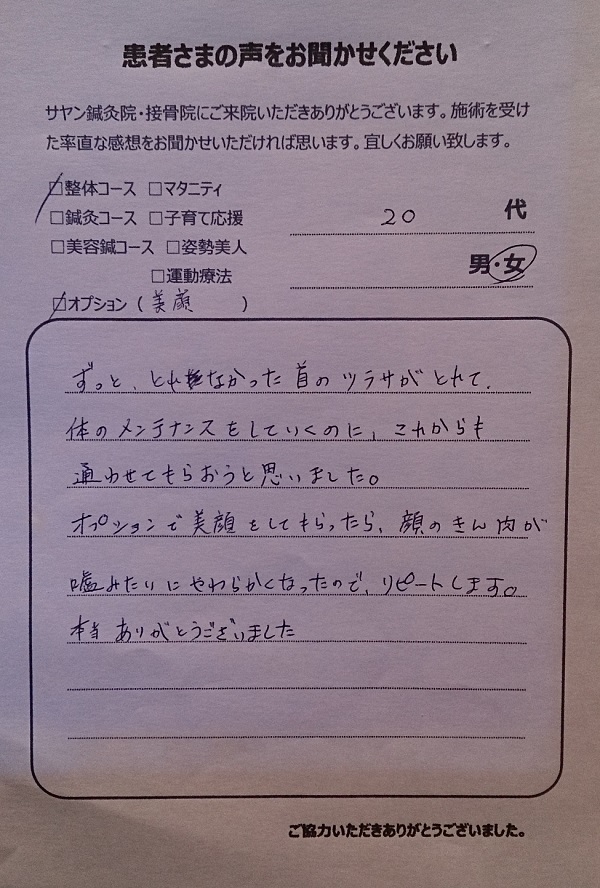 患者さまの声をお聞かせください
サヤン鍼灸院・接骨院にご来院いただきありがとうございます。施術を受け
た率直な感想をお聞かせいただければ思います。宜しくお願い致します。
□整体コース □マタニティ
□鍼灸コース □子育て応援
20 代
□美容鍼コース □姿勢美人
男・女
□運動療法
□オプション（美顔 ）
ずっと、とれなかった首のツラサがとれて、
体のメンテナンスをしていくのに、これからも
通わせてもらおうと思いました。
オプションで美顔をしてもらったら、顔のきん肉が
嘘みたいにやわらかくなったので、リピートします。
本当ありがとうございました
ご協力いただきありがとうございました。